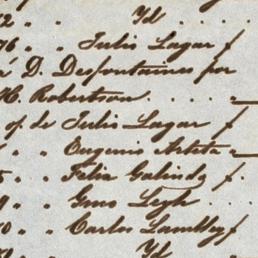 2 " " Yd
76 " " Julio Lagar f
é D. Desfontaines por
H. Robertson. . . .
of. de Julio Lagar f
" " Eugenio Arteta "
5 " " Felix Galindo f.
9 " " Gmo Leigh . . .
0 " " Carlos Lambley f
Yd